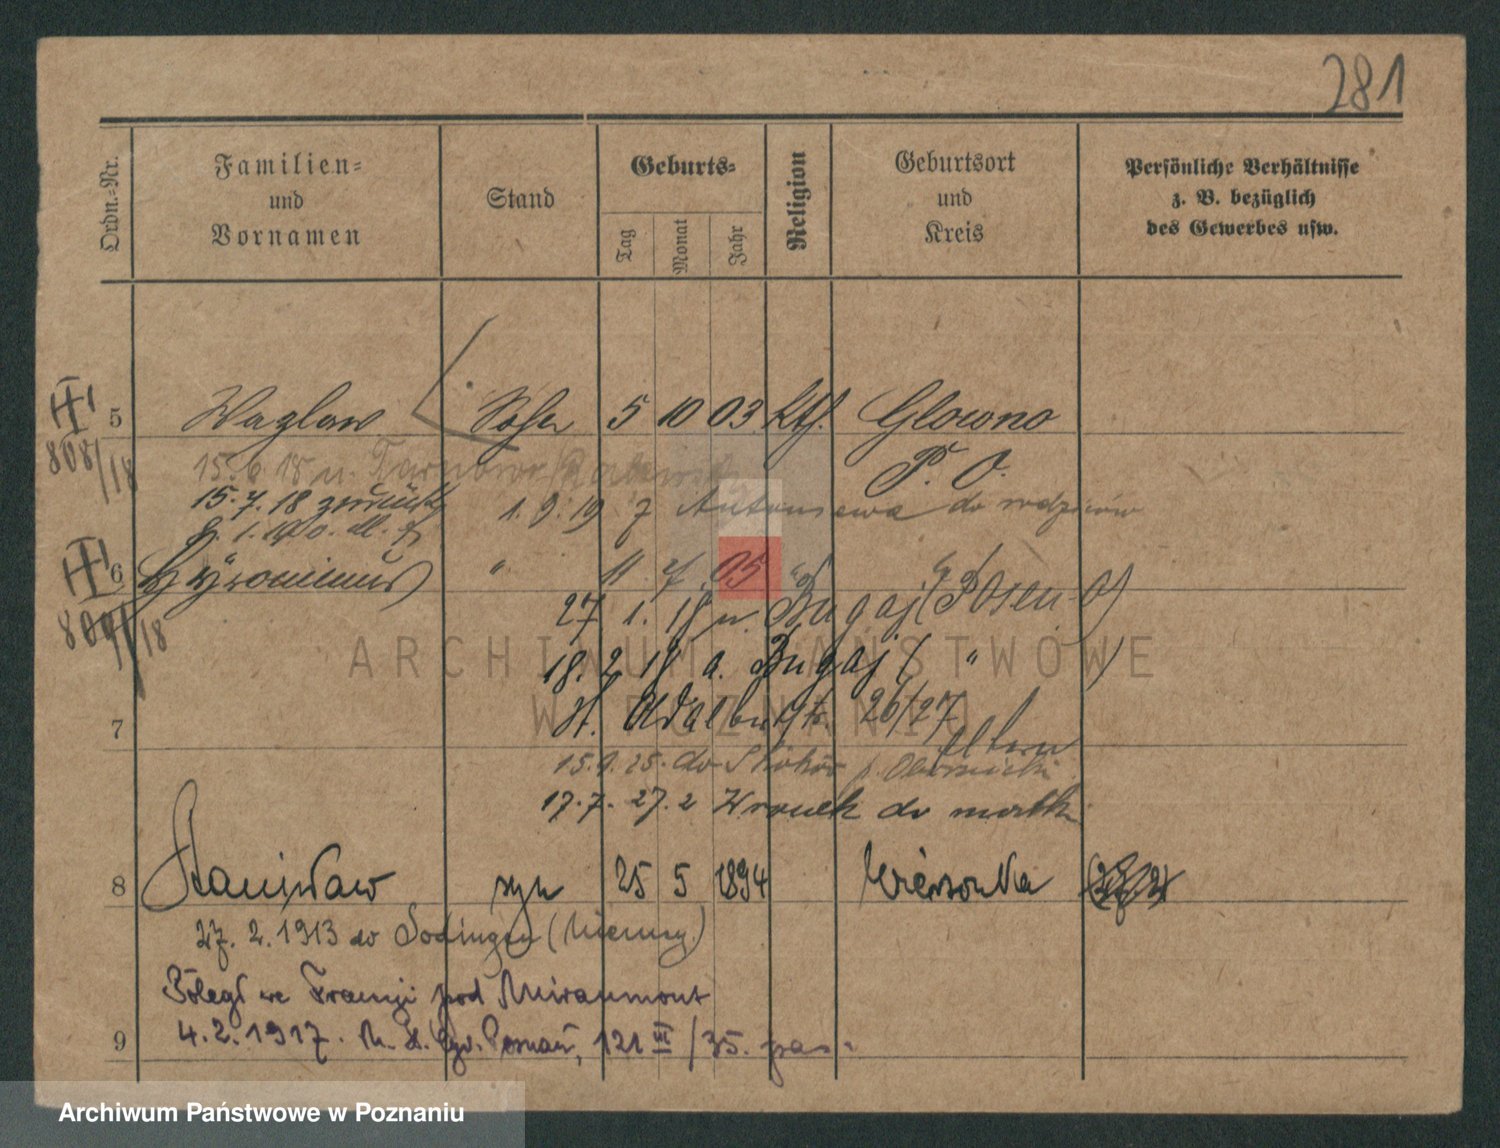 281
Ordn.-Nr.
Familien-
und
Vornamen
Stand
Geburts-
Tag
Monat
Jahr
Religion
Geburtsort
und
Kreis
Persönliche Verhältnisse
z. B. bezüglich
des Gewerbes usw.
5 Wazlaw Sohn 5 10 03 Kth. Glowno
808/18
P. O.
15.6.18 n. Tarnowo
15.7.18 zurück
1.9.19 z Antoniewa do rodziców
6 Hyronimus " 11 05 "
809/18
27 1. 18 n. Bugaj (Posen-O)
18. 2 18 a. Bugaj ( " )
7 St. Adalbertstr. 26/27
Eltern
15.9.25. do Obornicki
17.7.27. z Wronek do matki
8 Stanisław syn 25 5 1894 Wierzonka
27. 2. 1913 do Sodingen (Niemcy)
Poległ we Francji pod Miraumont
9 4.2.1917. Poznań, 121 VI /35. pas.
ARCHIWUM PAŃSTWOWE
W POZNANIU
Archiwum Państwowe w Poznaniu